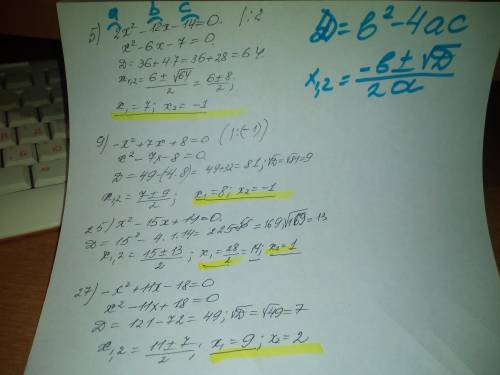 a b c
5) 2x² - 12x - 14 = 0. |:2
x² - 6x - 7 = 0
D = 36 + 4·7 = 36 + 28 = 64.
x₁,₂ = (6 ± √64)/2 = (6 ± 8)/2;
x₁ = 7; x₂ = -1
D = b² - 4ac
x₁,₂ = (-b ± √D)/2a
9) -x² + 7x + 8 = 0 (|:(-1)
x² - 7x - 8 = 0.
D = 49 - (4·8) = 49 + 32 = 81; √D = √81 = 9
x₁,₂ = (7 ± 9)/2; x₁ = 8; x₂ = -1
25) x² - 15x + 14 = 0.
D = 15² - 4·1·14 = 225 - 56 = 169, √169 = 13
x₁,₂ = (15 ± 13)/2; x₁ = 28/2 = 14; x₂ = 1
27) -x² + 11x - 18 = 0
x² - 11x + 18 = 0
D = 121 - 72 = 49; √D = √49 = 7
x₁,₂ = (11 ± 7)/2; x₁ = 9; x₂ = 2